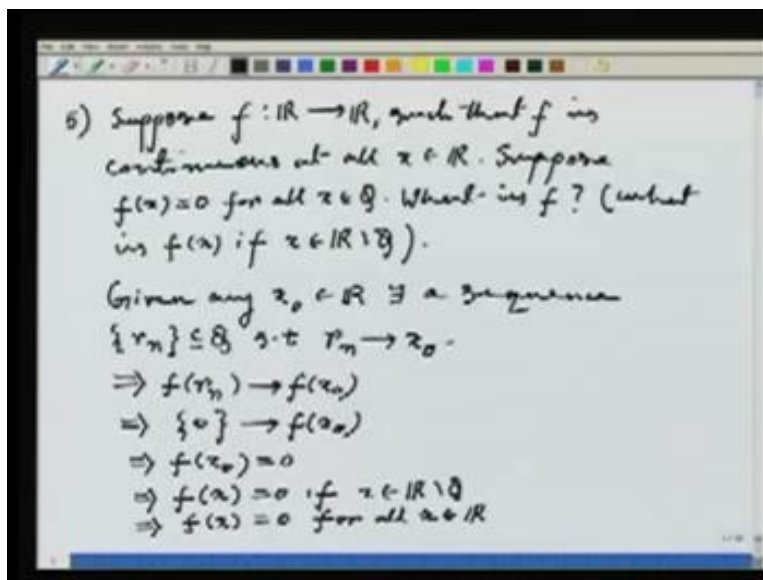 5) Suppose f : ℝ → ℝ, such that f is
continuous at all x ∈ ℝ. Suppose
f(x) = 0 for all x ∈ ℚ. What is f ? (what
is f(x) if x ∈ ℝ \ ℚ).
Given any x₀ ∈ ℝ ∃ a sequence
{rₙ} ⊆ ℚ s.t rₙ → x₀.
⇒ f(rₙ) → f(x₀)
⇒ {0} → f(x₀)
⇒ f(x₀) = 0
⇒ f(x) = 0 if x ∈ ℝ \ ℚ
⇒ f(x) = 0 for all x ∈ ℝ